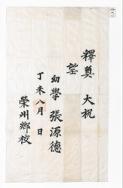 釋奠 大祝
望
幼學 張源德
丁未 八月 日
榮州鄕校